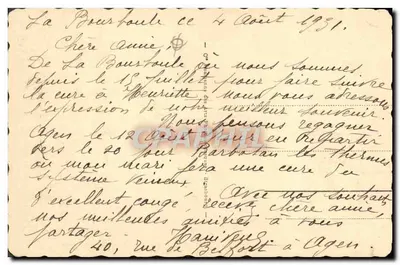 La Bourboule ce 4 Août 1931.
Chère Amie,
De La Bourboule où nous sommes
depuis le 15 Juillet pour faire suivre
la cure à Henriette, nous vous adressons
l'expression de notre meilleur souvenir.
Nous pensons regagner
Agen le 12 Août pour en repartir
vers le 20 pour Barbotan les thermes
où mon mari fera une cure du
système veineux
Avec nos souhaits
d'excellent congé, recevez chère amie,
nos meilleures amitiés à vous
partager
40, rue de Belfort à Agen.